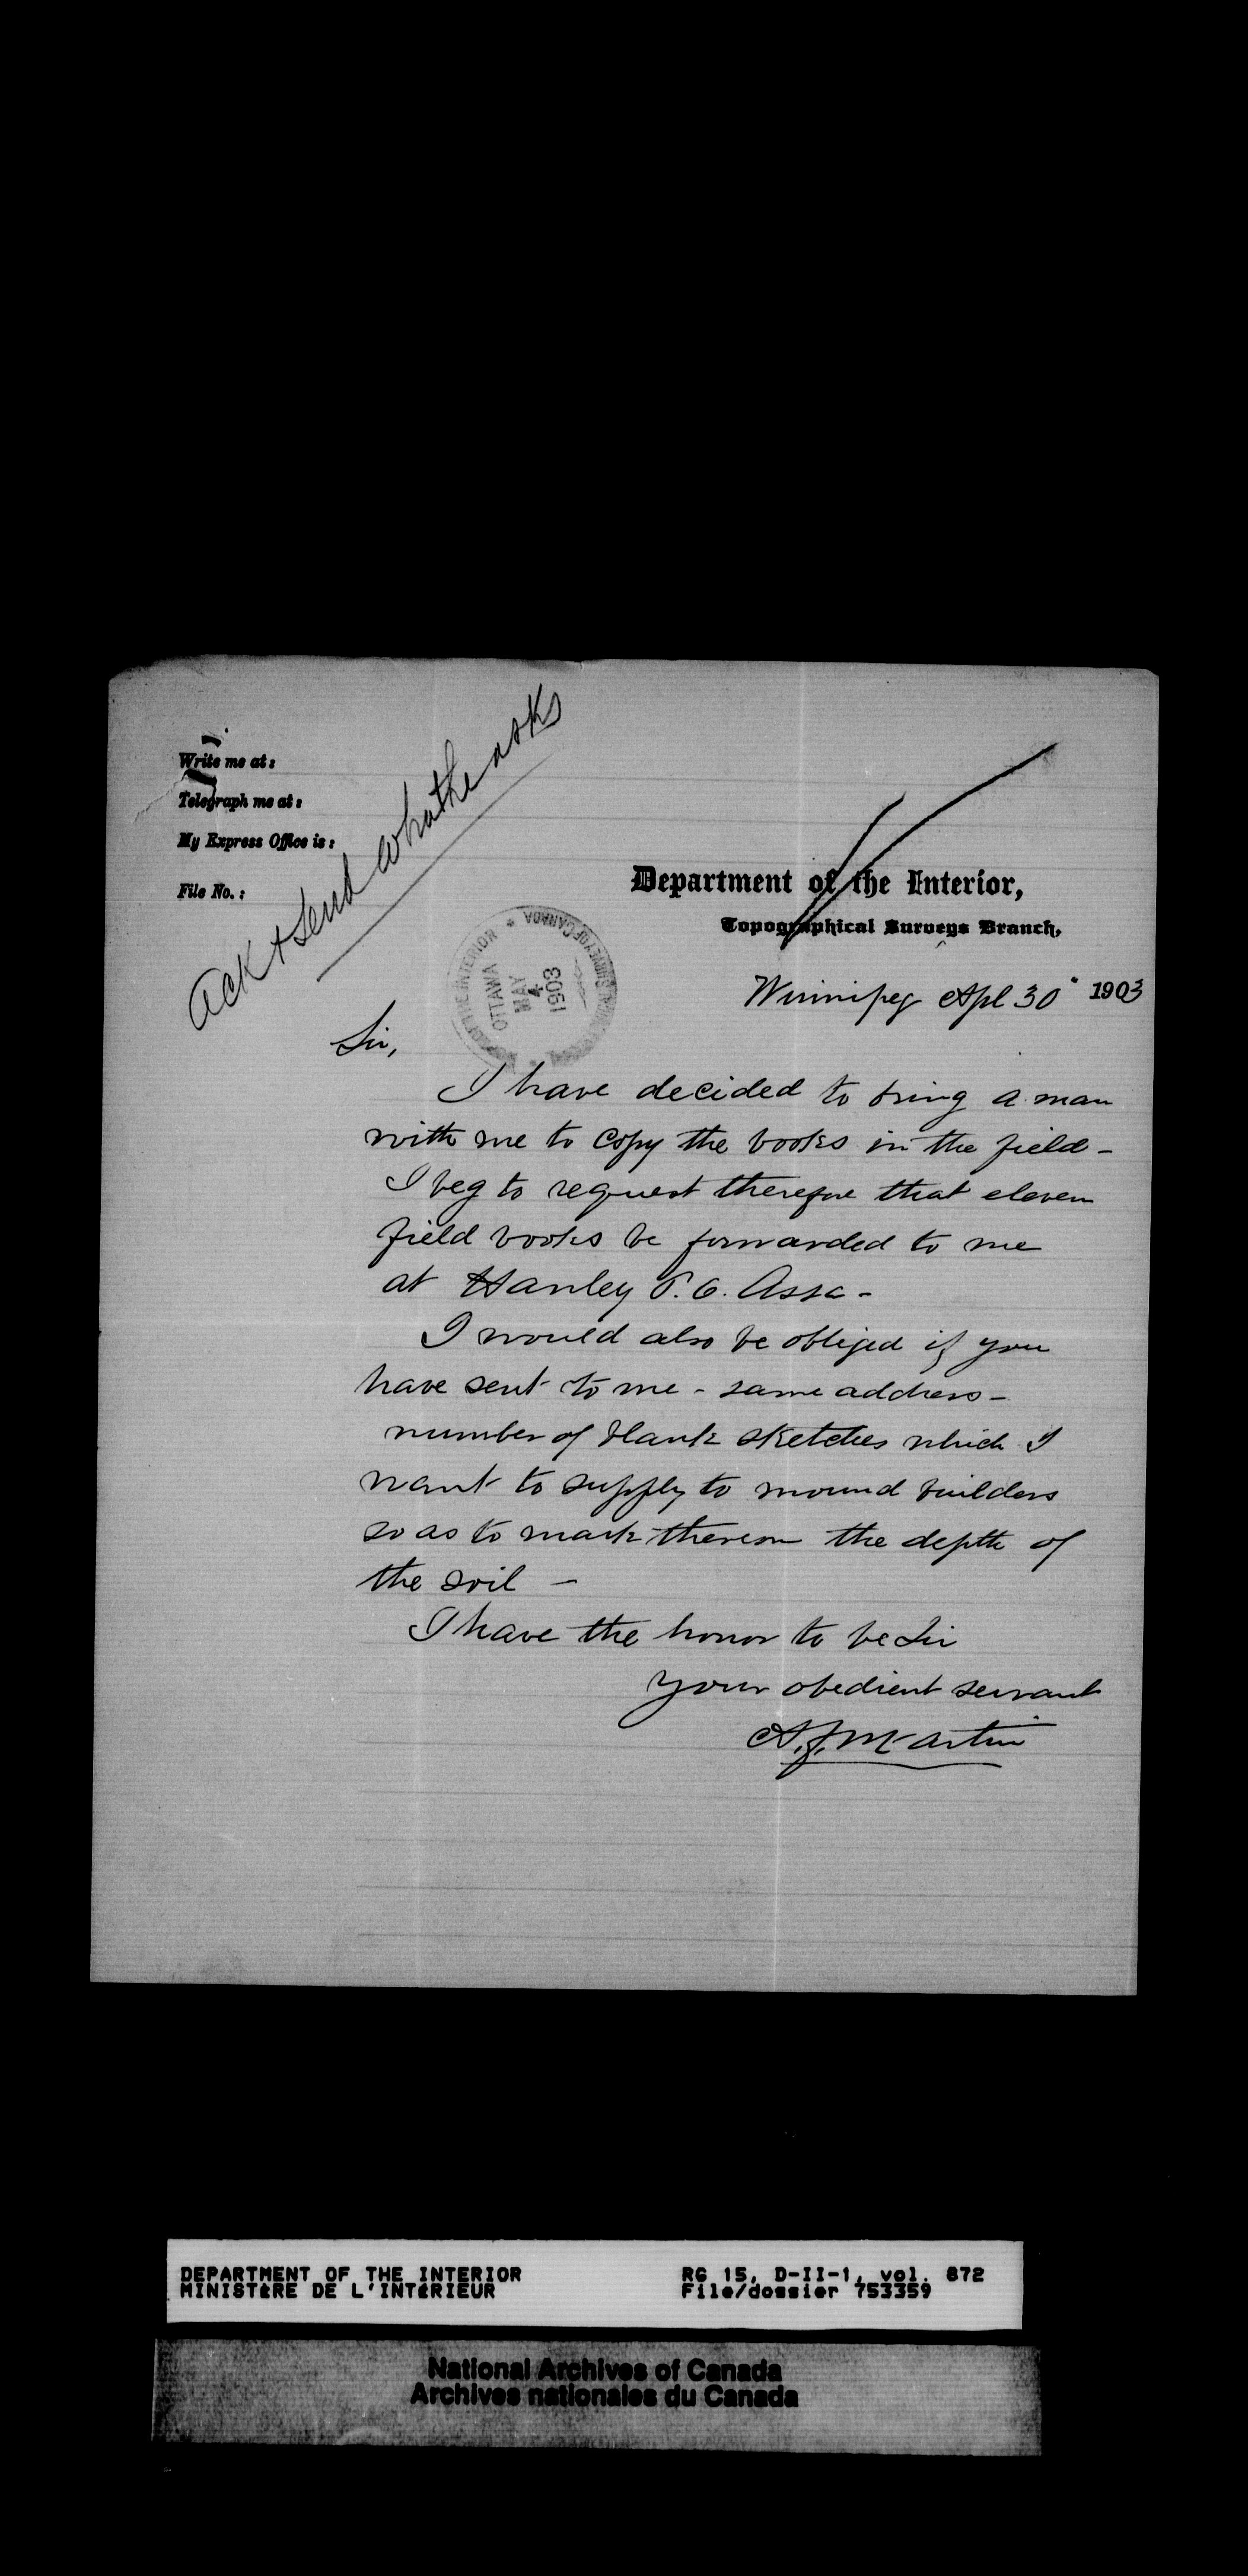 Write me at:
Telegraph me at:
My Express Office is:
File No.:
Ack & send what he asks
Department of the Interior,
Topographical Surveys Branch,
OTTAWA
MAY
4
1903
Winnipeg Apl 30" 1903
Sir,
I have decided to bring a man
with me to copy the books in the field -
I beg to request therefore that eleven
field books be forwarded to me
at Hanley P.O. Assa -
I would also be obliged if you
have sent to me - same address -
number of blank sketches which I
want to supply to mound builders
so as to mark thereon the depth of
the soil -
I have the honor to be Sir
your obedient servant
A.F. Martin
DEPARTMENT OF THE INTERIOR
MINISTÈRE DE L'INTÉRIEUR
RG 15, D-II-1, vol. 872
File/dossier 753359
National Archives of Canada
Archives nationales du Canada